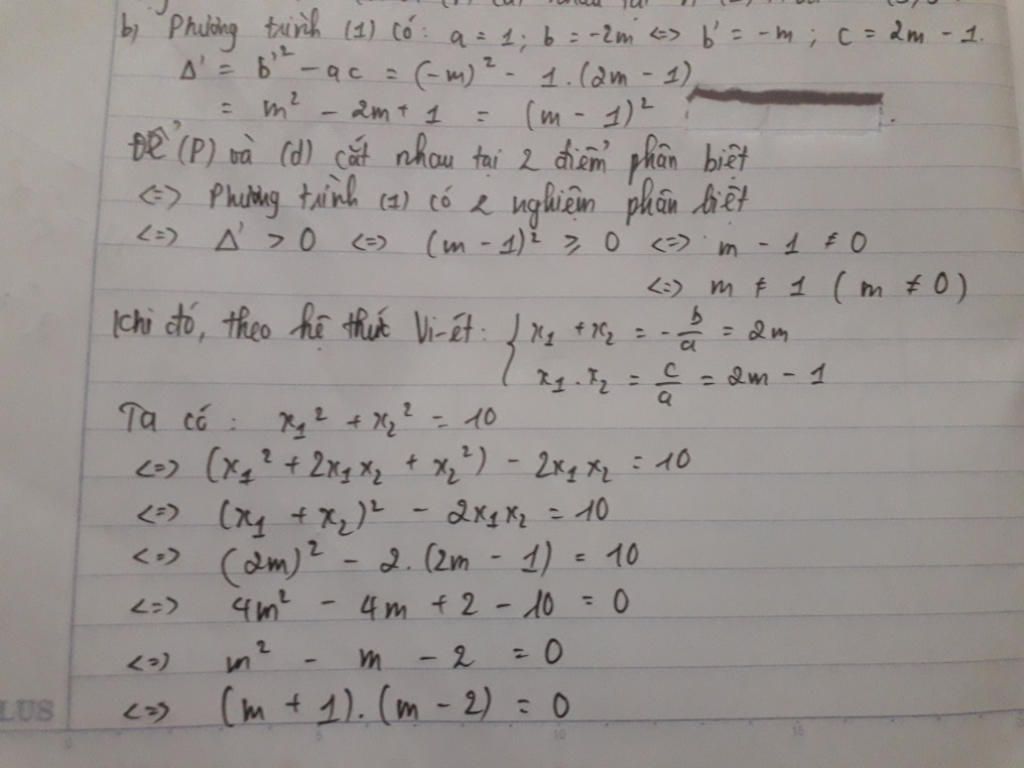 b) Phương trình (1) có: a = 1; b = -2m <=> b' = -m; c = 2m - 1.
Δ' = b'² - ac = (-m)² - 1.(2m - 1)
= m² - 2m + 1 = (m - 1)²
Để (P) và (d) cắt nhau tại 2 điểm phân biệt
<=> Phương trình (1) có 2 nghiệm phân biệt
<=> Δ' > 0 <=> (m - 1)² ⩾ 0 <=> m - 1 ≠ 0
<=> m ≠ 1 (m ≠ 0)
Khi đó, theo hệ thức Vi-ét: { x₁ + x₂ = -b/a = 2m
x₁ . x₂ = c/a = 2m - 1
Ta có: x₁² + x₂² = 10
<=> (x₁² + 2x₁x₂ + x₂²) - 2x₁x₂ = 10
<=> (x₁ + x₂)² - 2x₁x₂ = 10
<=> (2m)² - 2.(2m - 1) = 10
<=> 4m² - 4m + 2 - 10 = 0
<=> m² - m - 2 = 0
<=> (m + 1).(m - 2) = 0
LUS
0 5 10 15